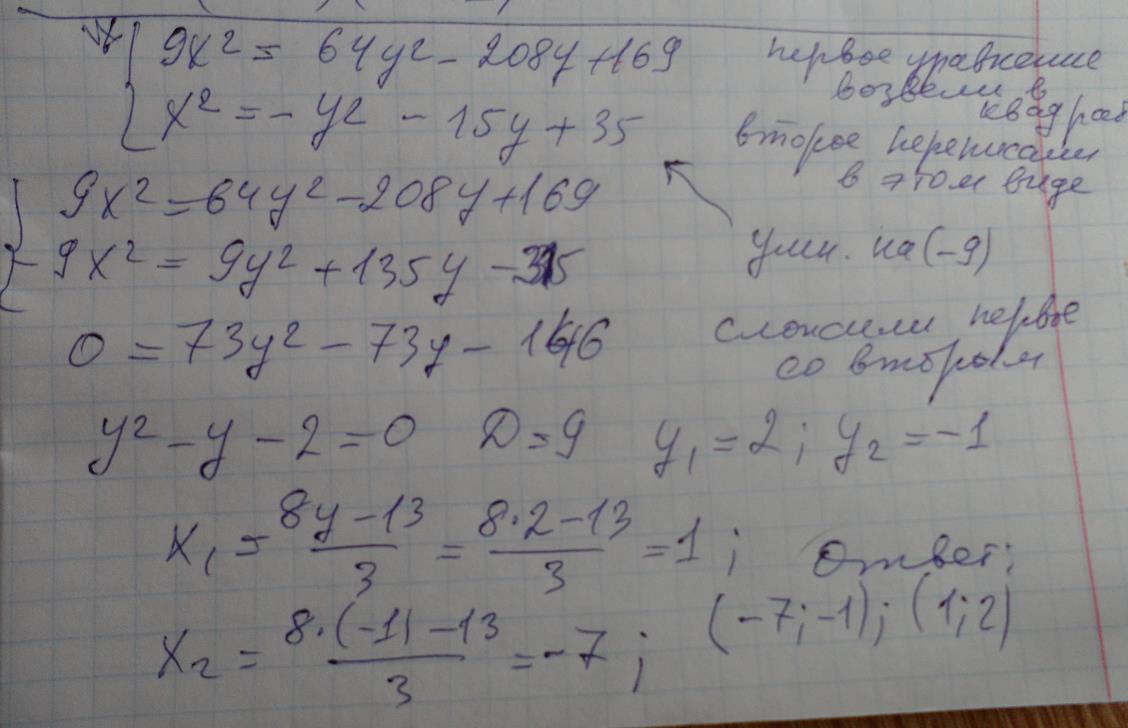 9x² = 64y² - 208y + 169 первое уравнение
возвели в
квадрат
x² = - y² - 15y + 35 второе переписали
в этом виде
9x² = 64y² - 208y + 169
- 9x² = 9y² + 135y - 315 умн. на (-9)
0 = 73y² - 73y - 146 сложили первое
со вторым
y² - y - 2 = 0 D = 9 y₁ = 2; y₂ = -1
x₁ = (8y - 13)/3 = (8·2 - 13)/3 = 1; Ответ:
x₂ = (8·(-1) - 13)/3 = -7; (-7; -1); (1; 2)